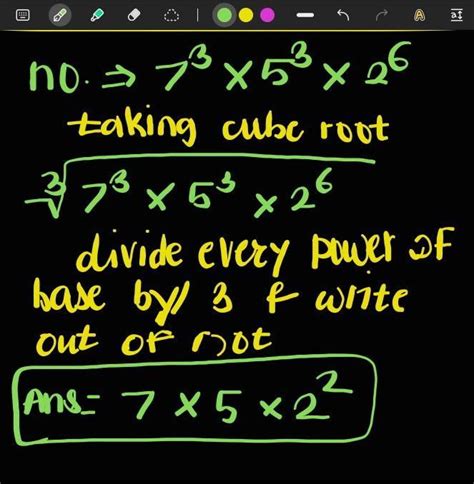 no. ⇒ 7³ × 5³ × 2⁶
taking cube root
∛7³ × 5³ × 2⁶
divide every power of
base by 3 & write
out of root
Ans = 7 × 5 × 2²